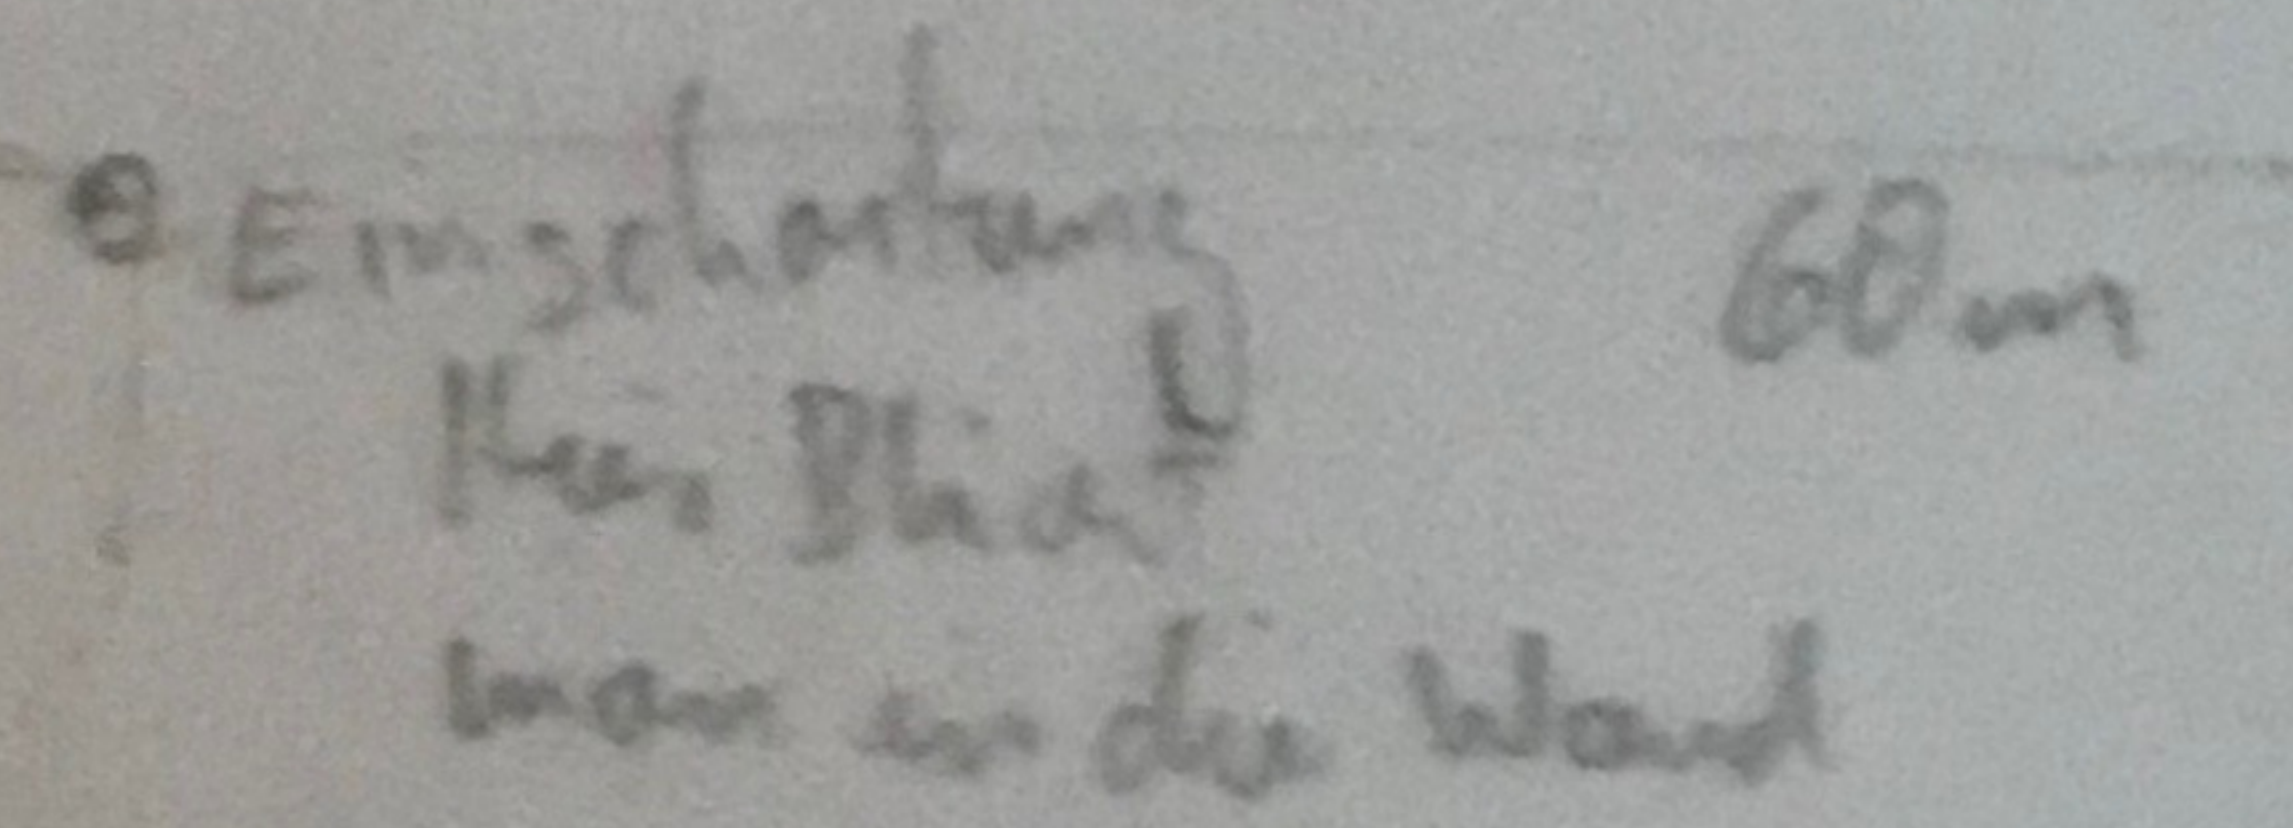 Einschartung 60m
Hier Blickt
man in die Wand